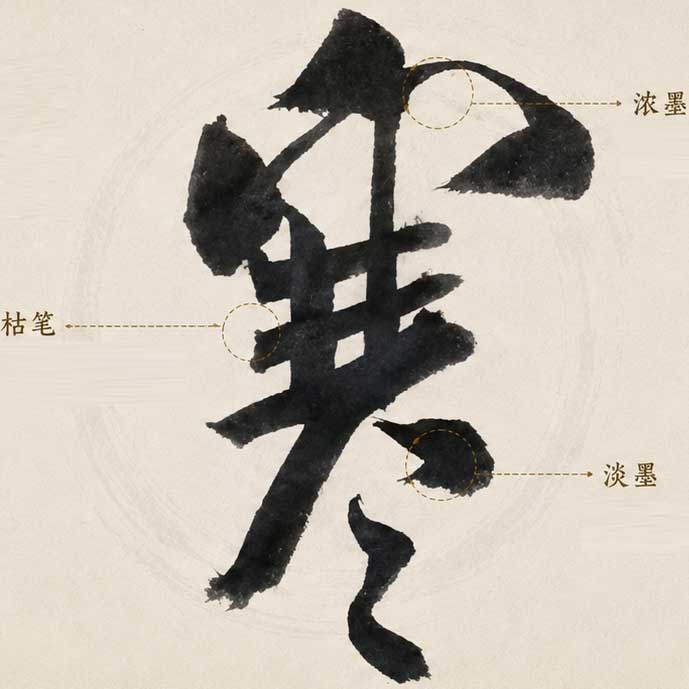 寒
浓墨
枯笔
淡墨